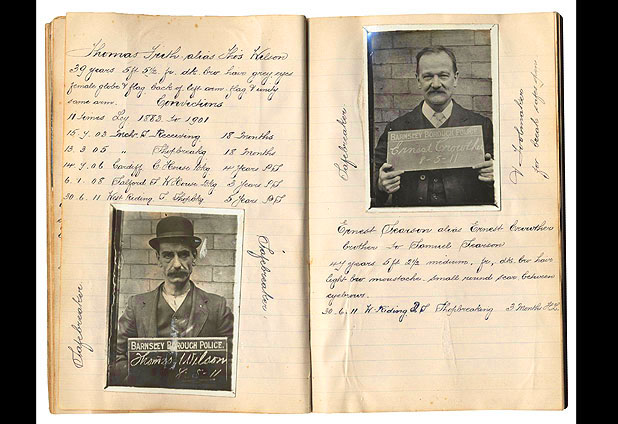 Thomas Frith, alias Thos Wilson
39 years 5ft 5½ fr. dk. bro hair grey eyes
female globe & flag back of left arm, flag & unity
same arm. Convictions
11 times 1882 to 1901
15.7.03 S Receiving 18 Months
13.3.05 " Shopbreakg 18 Months
Cardiff House Bkg 4 Years P.S
6.1.08 Salford House Bkg 3 Years P.S
30.6.11 West Riding S. Shopbkg 5 Years P.S
Safebreaker
Safebreaker
BARNSLEY BOROUGH POLICE.
Thomas Wilson
8-5-11
Safebreaker
BARNSLEY BOROUGH POLICE
Ernest Crowther
8-5-11
& Toolmaker
for break safes
Ernest Pearson alias Ernest Crowther
brother to Samuel Pearson
44 years 5ft 2½ medium, fr, dk. bro hair
light bro moustache. small round scar between
eyebrows.
30.6.11 W. Riding Shopbreaking 3 Months H.L